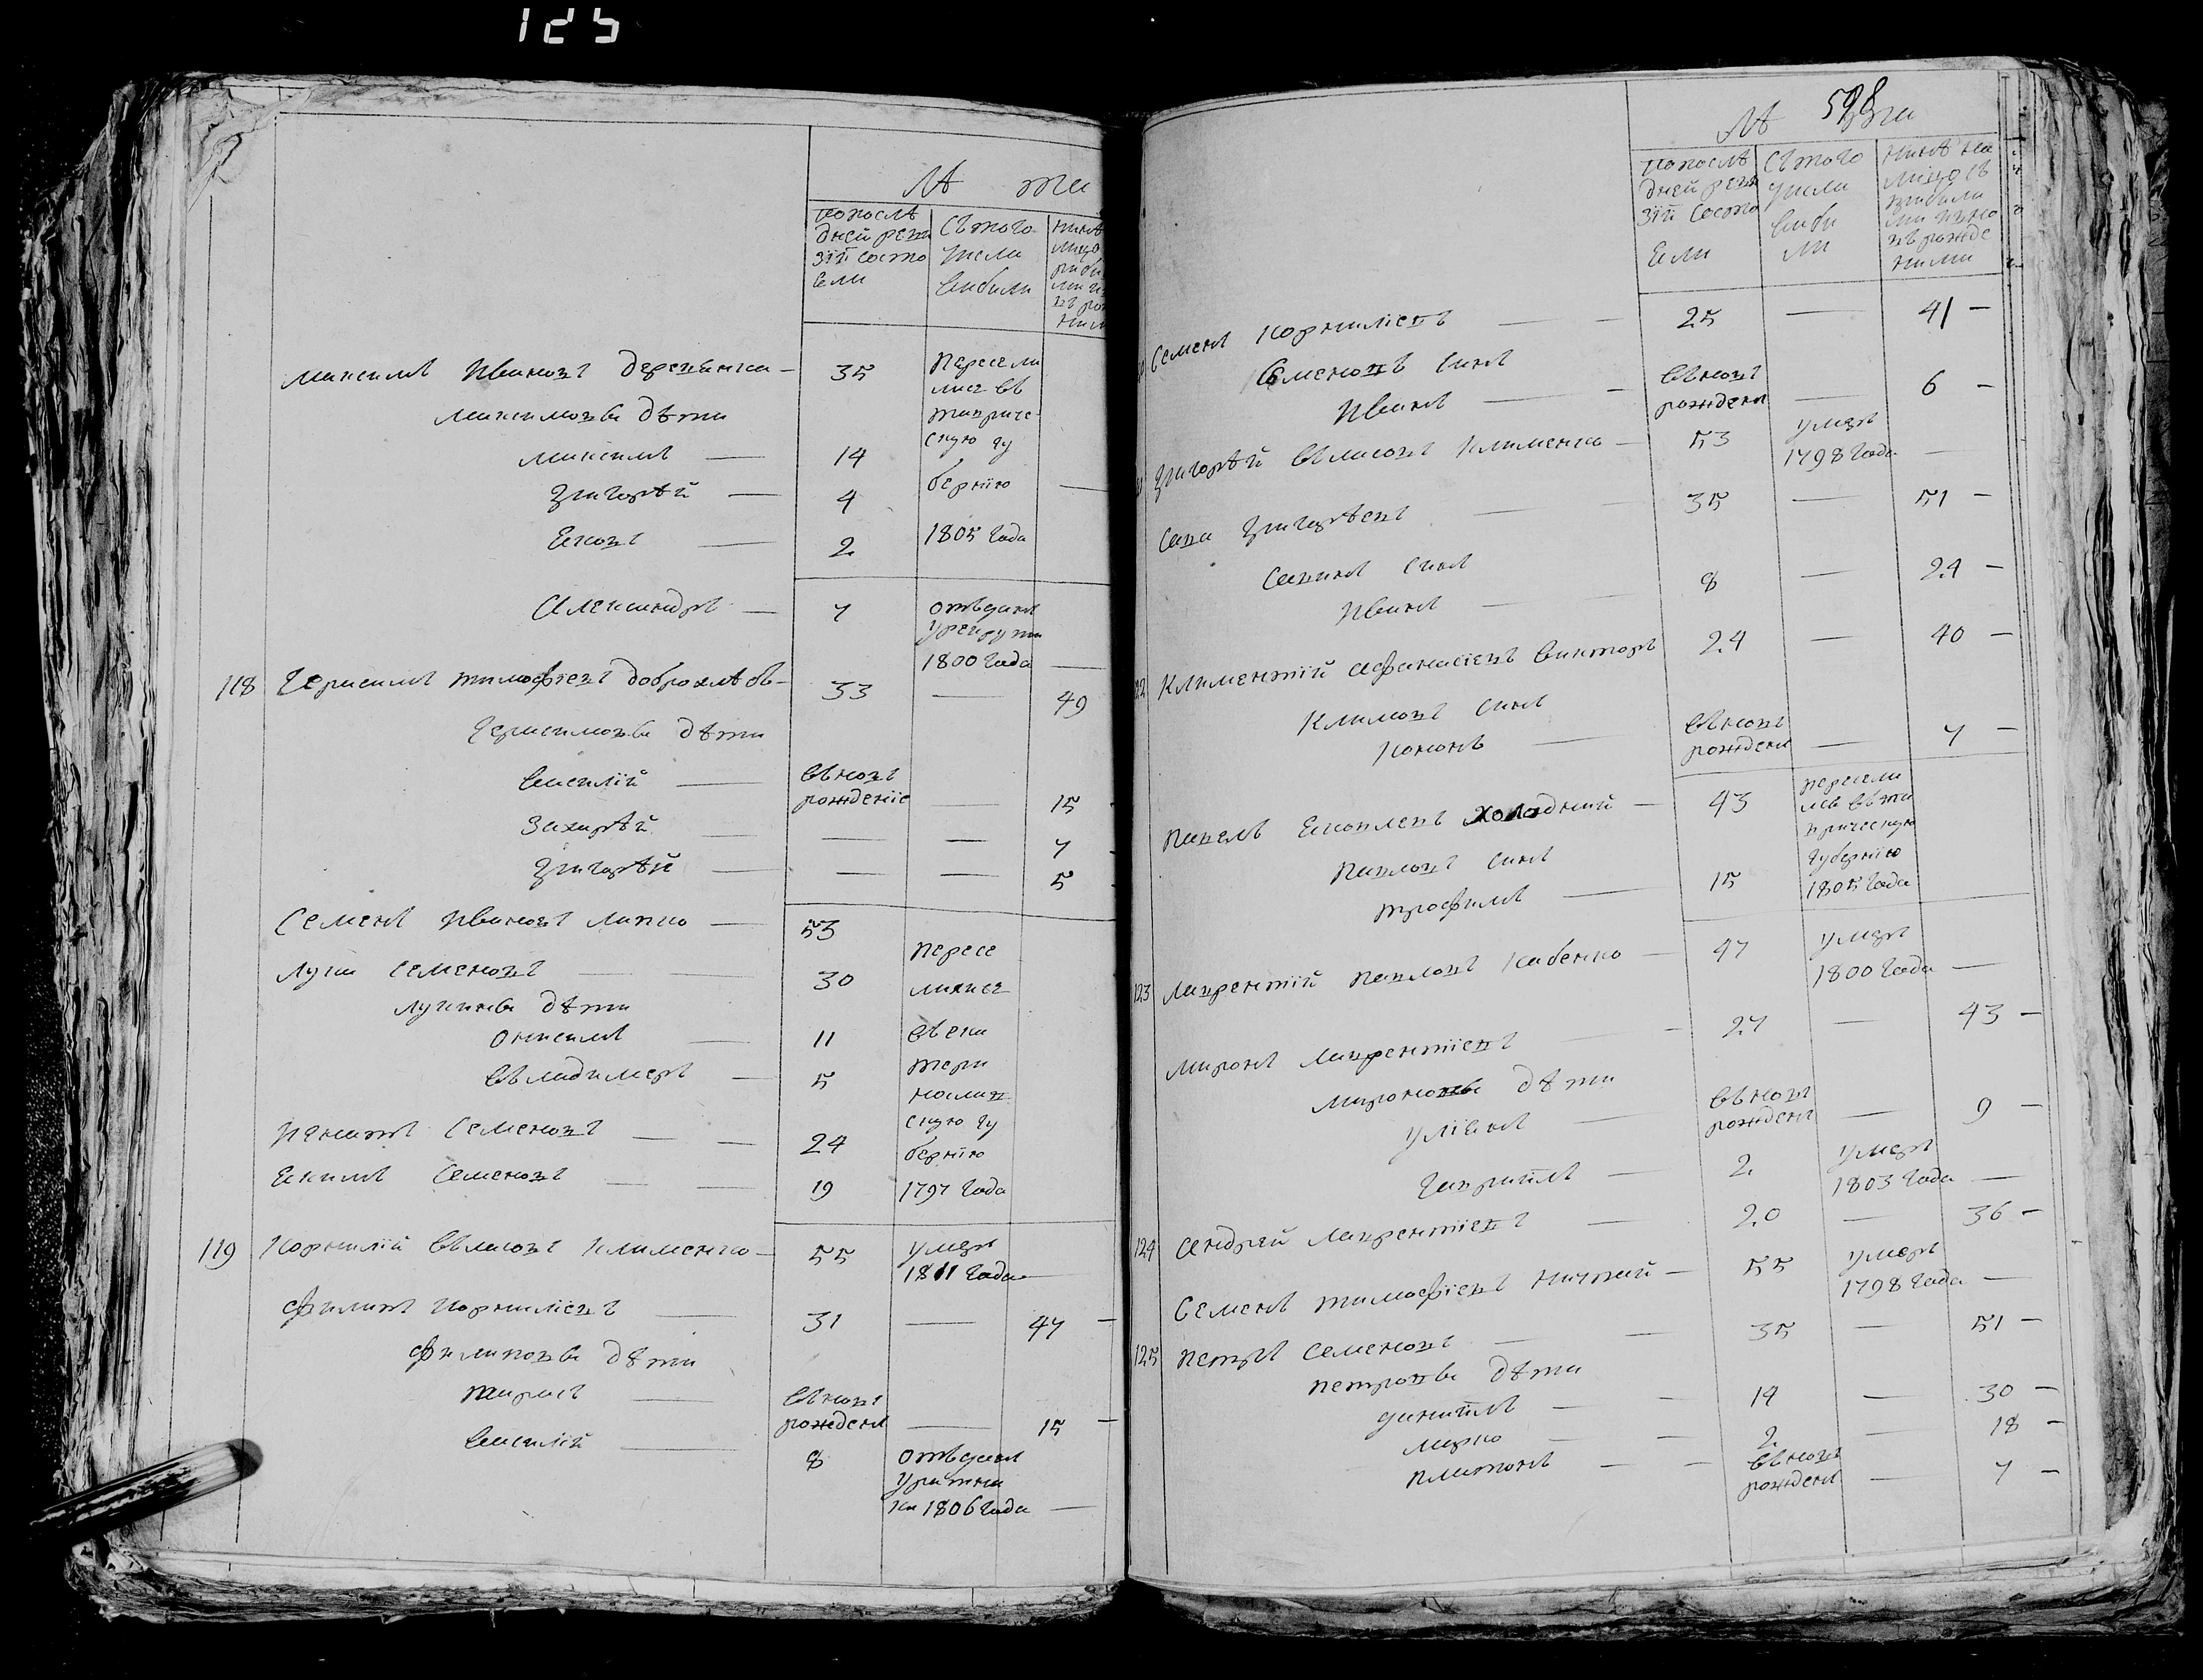 125
Лѣ та
попослѣ
дней реви
зіи состо
яли
сътого
числа
выбыли
Максимъ Ивановъ Деревянка — 35
Пересели
лися въ
тавриче
скую гу
бернію
1805 года
Максимовы дѣти
Максимъ — 14
Григорѣй — 4 —
Яковъ — 2
Александръ — 7 отъданъ
урекруты
1800 года —
118 Герасимъ Тимофіевъ Доброхлѣбъ — 33 — 49
Герасимовы дѣти
Василій — въновъ
рожденіе — 15
Захарѣй — — — 7
Григорѣй — — — 5
Семенъ Ивановъ Липко — 53
Пересе
лилися
въека
тери
нослав
скую гу
бернію
1797 года
Лука Семеновъ — — 30
Лукины дѣти
Онисимъ — 11
Въладимеръ — 5
Игнатъ Семеновъ — — 24
Якимъ Семеновъ — — 19
119 Корнилій Въласовъ Клименко — 55 умеръ
1811 года —
Филипъ Корниліевъ — 31 — 47 —
Филиповы дѣти
Тарасъ — въновъ
рожденъ — 15 —
Василій — 8 отъданъ
уратни
ки 1806 года —
598
Лѣ та
попослѣ
дней реви
зіи состо
яли
сътого
числа
выбы
ли
нынѣ на
лицо съ
прибыли
ми ивно
въ рожде
ными
Семенъ Корниліевъ — — 25 — 41 —
Семеновъ сынъ
Иванъ — — въновъ
рожденъ — 6 —
Григорѣй Въласовъ Клименко — 53 умеръ
1798 года —
Сава Григорѣевъ — — 35 — 51 —
Савинъ сынъ
Иванъ — 8 — 24 —
122 Климентій Афанасіевъ Викторъ 24 — 40 —
Климовъ сынъ
Кононъ — въновъ
рожденъ — 7 —
Павелъ Яковлевъ Холодний — 43 пересели
лсь въта
врическую
губернію
1805 года
Павловъ сынъ
Трофимъ — 15
123 Лаврентій Павловъ Кабенко — 47 умеръ
1800 года —
Миронъ Лаврентіевъ — — 27 — 43 —
Мироновы дѣти
Уліянъ — въновъ
рожденъ — 9 —
Гавріилъ — 2 умеръ
1803 года —
124 Андрей Лаврентіевъ — 20 — 36 —
Семенъ Тимофіевъ — 55 умеръ
1798 года —
125 Петръ Семеновъ — — 35 — 51 —
Петровы дѣти
Даніилъ — — 14 — 30 —
Марко — — 2 — 18 —
Платонъ — — въновъ
рожденъ — 7 —